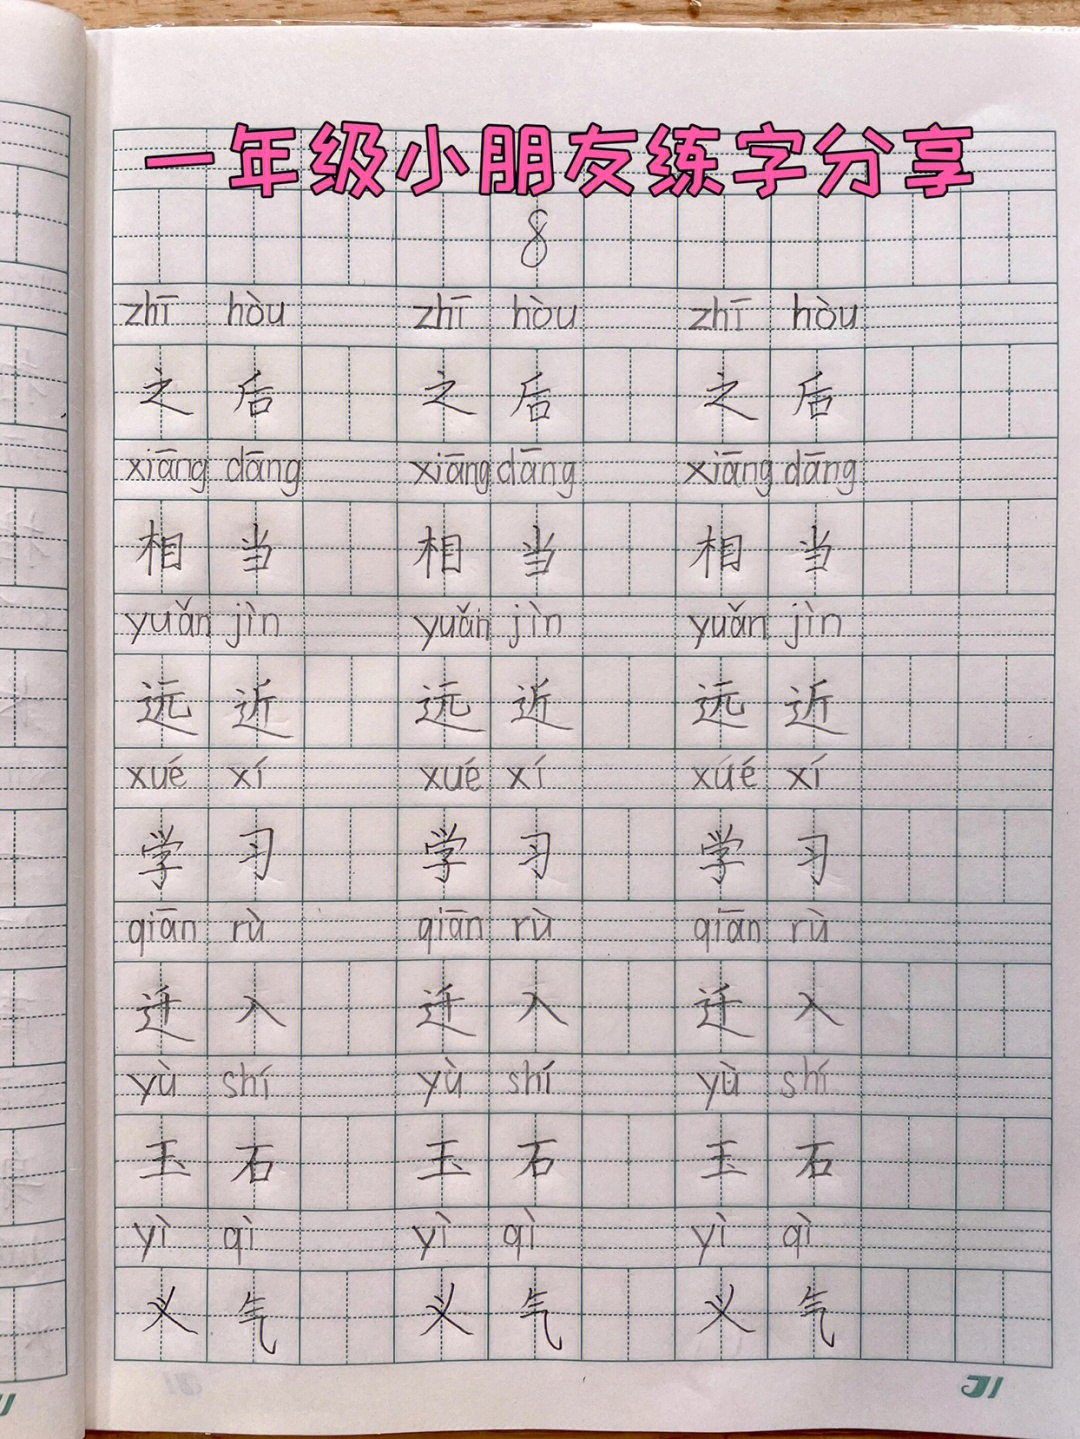 一年级小朋友练字分享
8
zhī hòu zhī hòu zhī hòu
之后 之后 之后
xiāng dāng xiāng dāng xiāng dāng
相当 相当 相当
yuǎn jìn yuǎn jìn yuǎn jìn
远近 远近 远近
xué xí xué xí xué xí
学习 学习 学习
qiān rù qiān rù qiān rù
迁入 迁入 迁入
yù shí yù shí yù shí
玉石 玉石 玉石
yì qì yì qì yì qì
义气 义气 义气